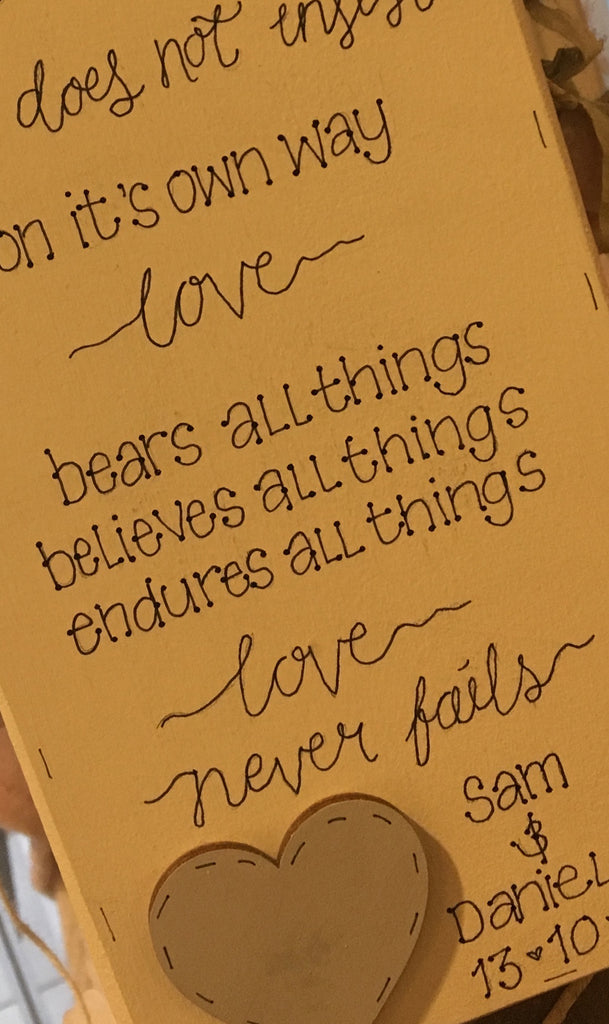 does not insist
on it's own way
love
bears all things
believes all things
endures all things
love
never fails
Sam
&
Daniel
13♥10